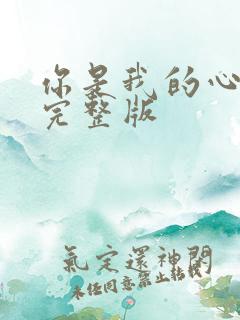 你是我的心
完整版
氣定還神閑
未任同意禁止轉載